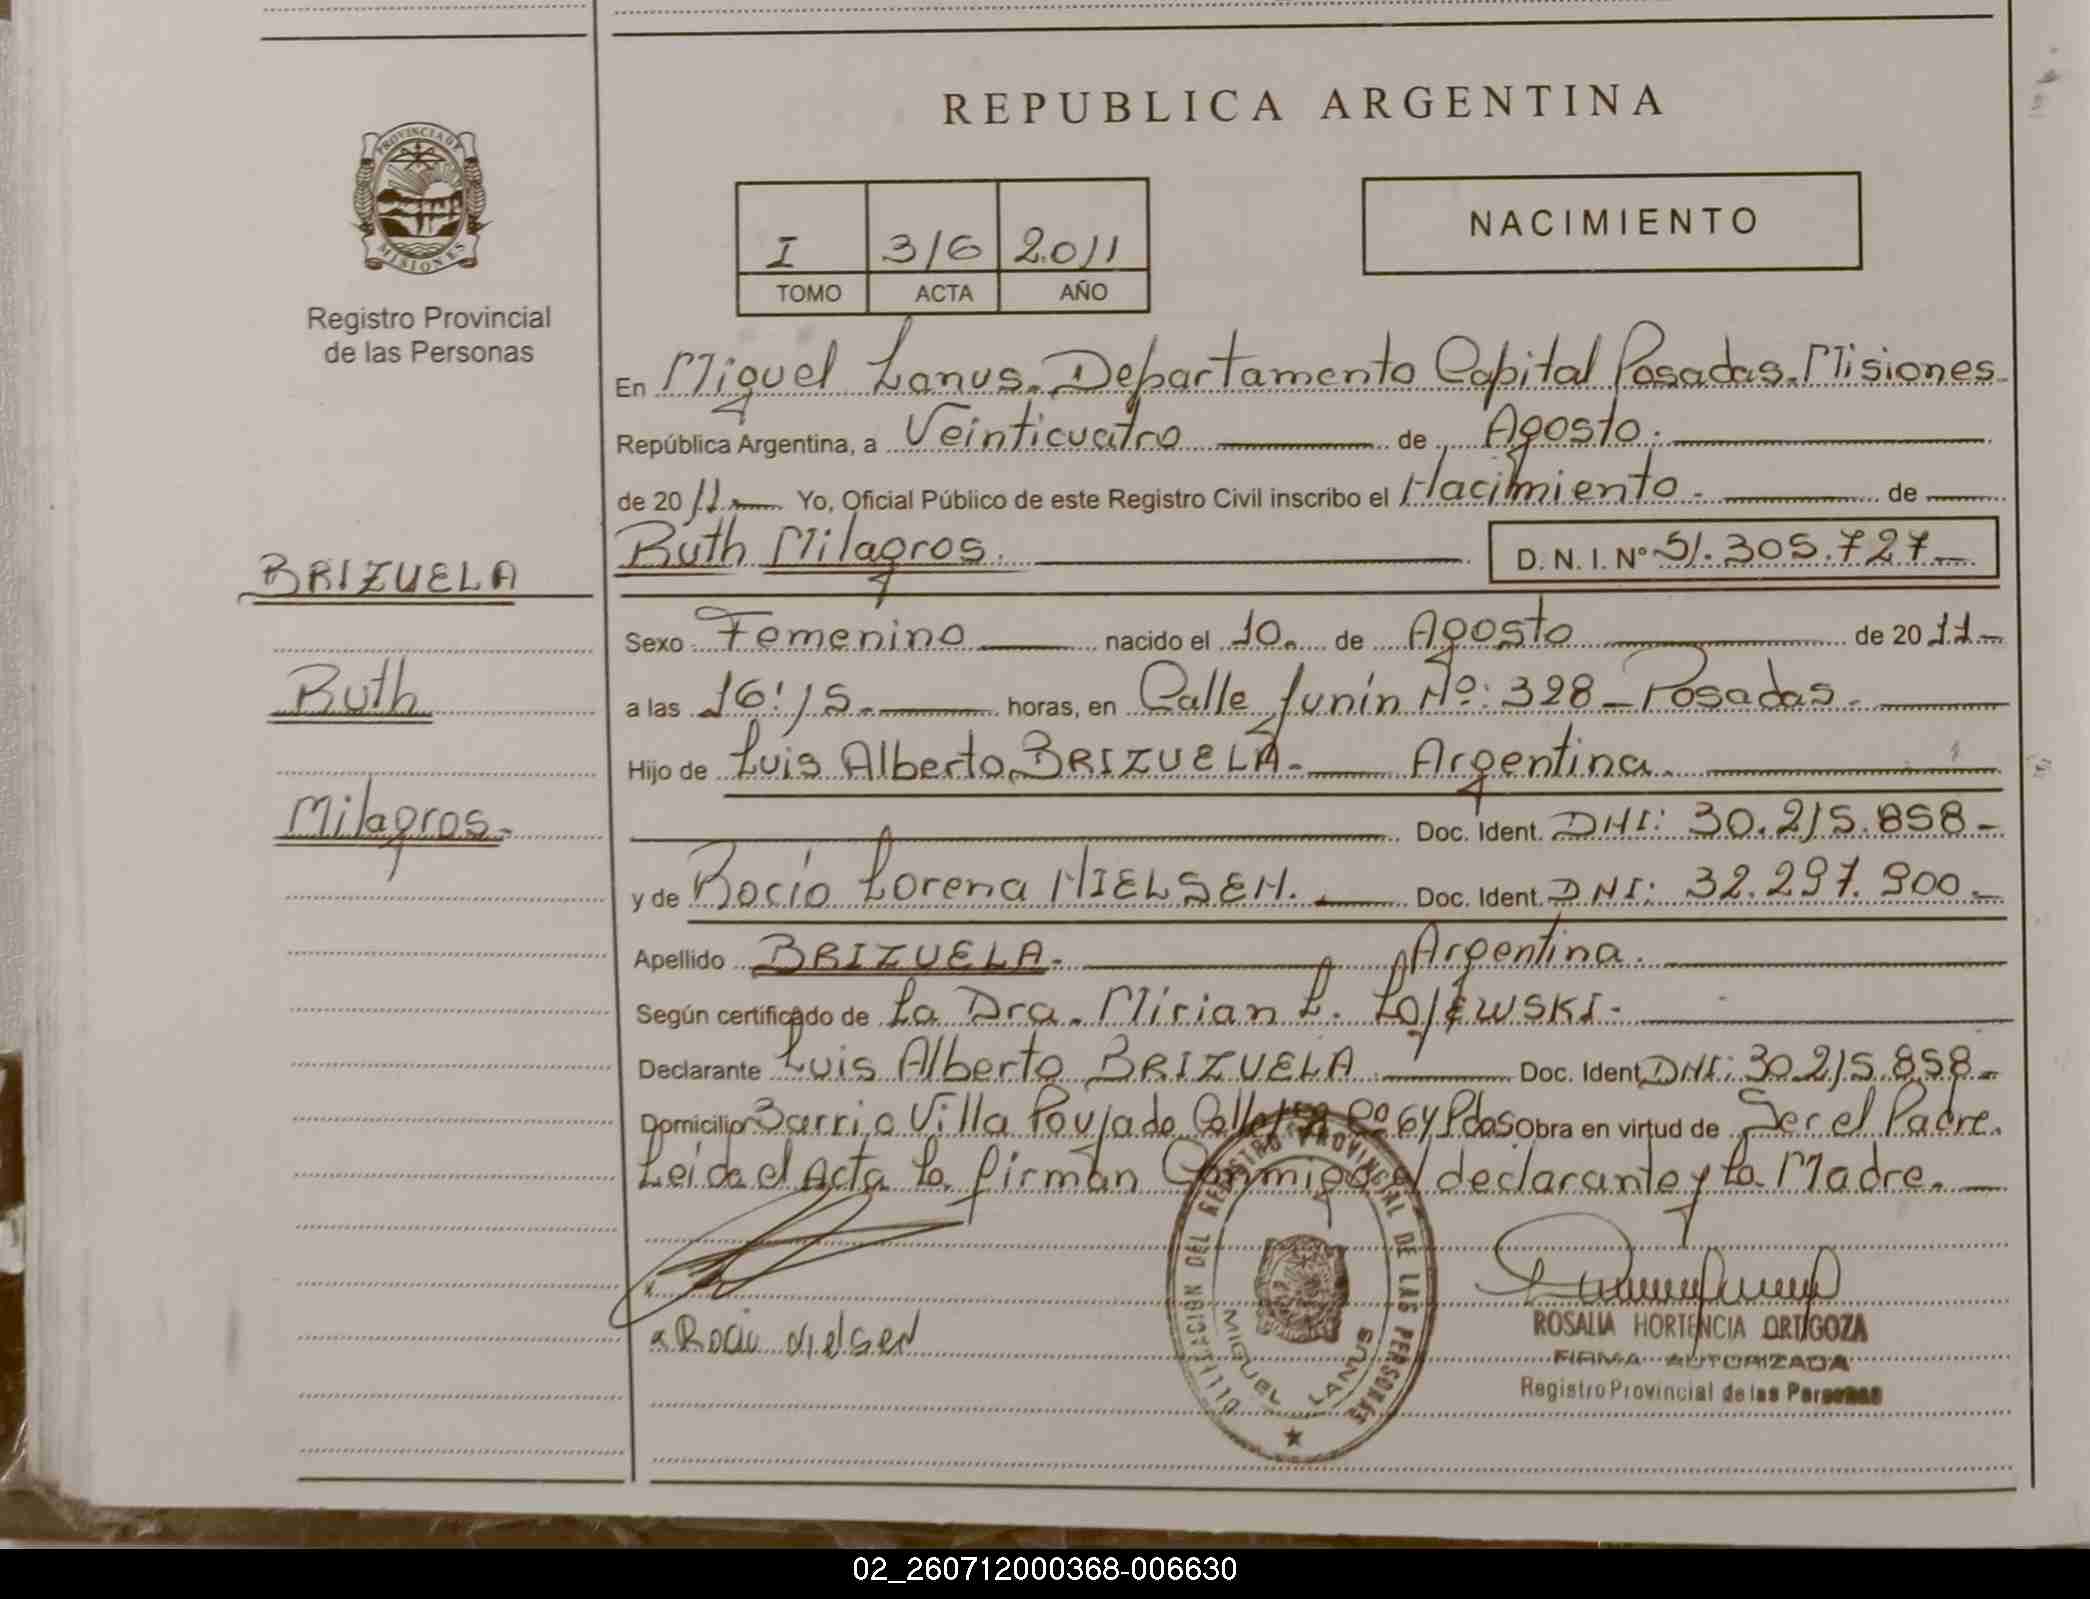 REPUBLICA ARGENTINA
PROVINCIA DE
MISIONES
Registro Provincial
de las Personas
I 316 2011
TOMO ACTA AÑO
NACIMIENTO
En Miguel Lanus. Departamento Capital Posadas. Misiones
República Argentina, a Veinticuatro de Agosto.
de 20 11 Yo, Oficial Público de este Registro Civil inscribo el Nacimiento. de
Ruth Milagros. D. N. I. Nº 51.305.727
BRIZUELA
Ruth
Milagros.
Sexo Femenino nacido el 10 de Agosto de 20 11
a las 16:15 horas, en Calle Junín Nº: 328 - Posadas.
Hijo de Luis Alberto BRIZUELA. Argentina.
Doc. Ident. DNI: 30.215.858
y de Rocío Lorena NIELSEN. Doc. Ident. DNI: 32.297.900.
Apellido BRIZUELA. Argentina.
Según certificado de La Dra. Mirian L. LOJEWSKI.
Declarante Luis Alberto BRIZUELA Doc. Ident. DNI: 30.215.858
Domicilio Barrio Villa Poujade 64 Pdas Obra en virtud de Ser el Padre.
Leída el Acta la firman Conmigo el declarante y la Madre.
Rocio Nielsen
DELEGACION DEL REGISTRO PROVINCIAL DE LAS PERSONAS
MIGUEL LANUS
ROSALIA HORTENCIA ORTIGOZA
FIRMA AUTORIZADA
Registro Provincial de las Personas
02_260712000368-006630